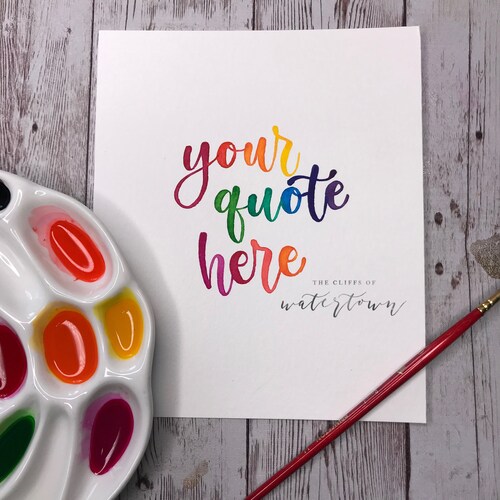 your
quote
here
THE CLIFFS OF
watertown